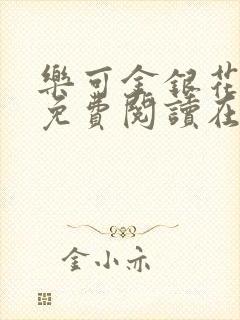 樂可金銀花
免費閱讀在
金小亦